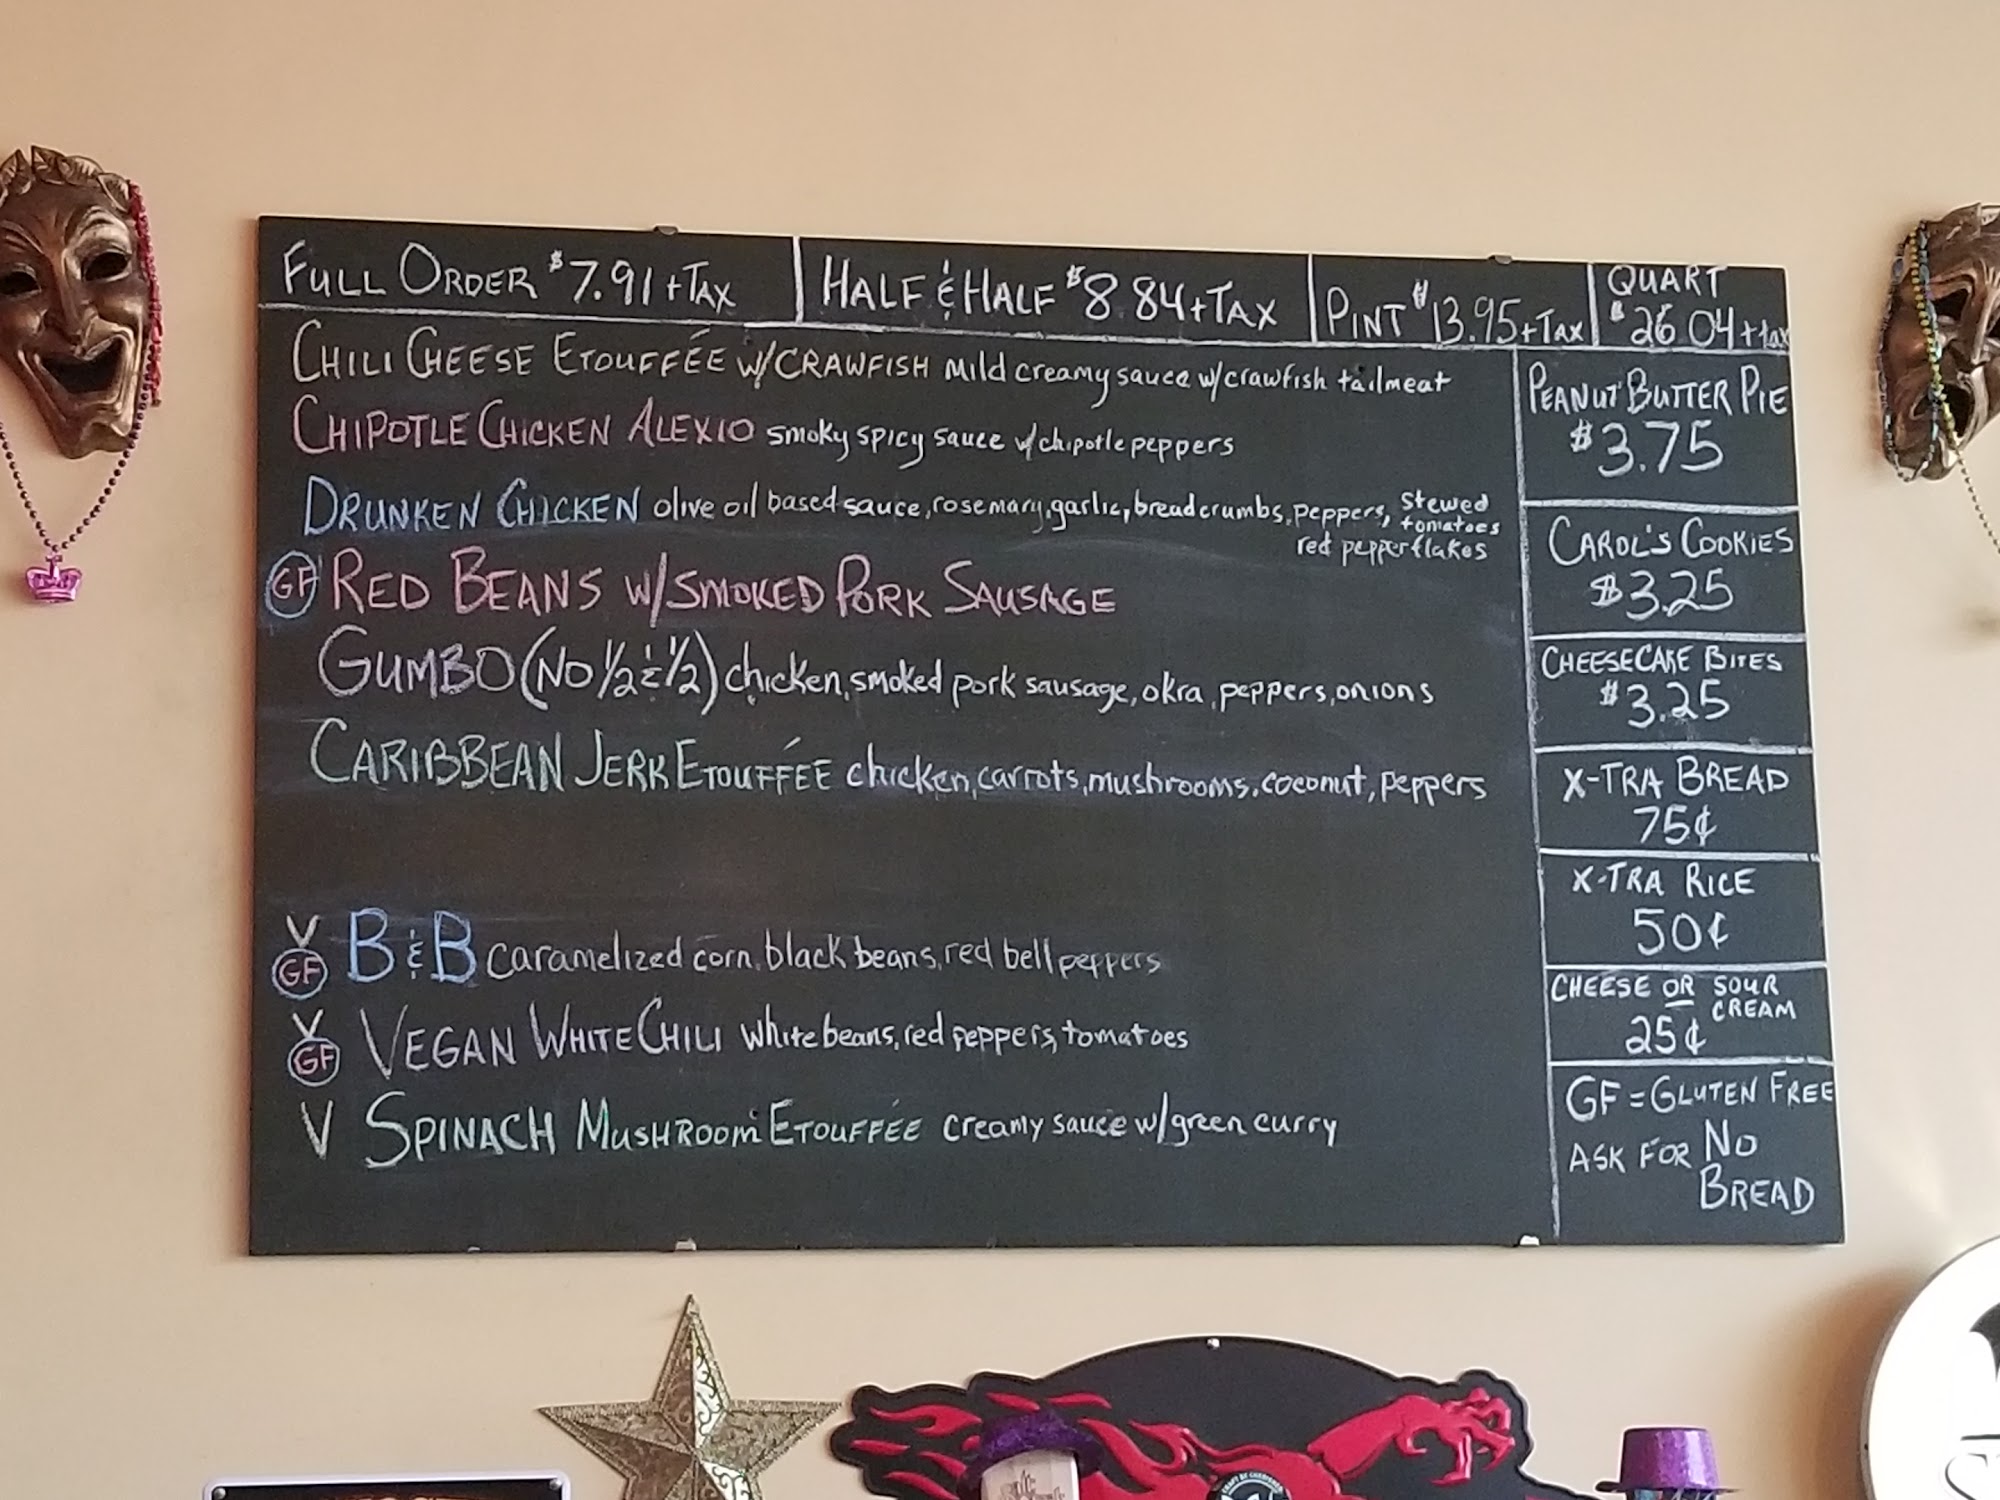 FULL ORDER $7.91+TAX
HALF & HALF $8.84+TAX
PINT $13.95+TAX
QUART
$26.04+tax
CHILI CHEESE ETOUFFÉE W/CRAWFISH mild creamy sauce w/crawfish tailmeat
CHIPOTLE CHICKEN ALEXIO smoky spicy sauce w/chipotle peppers
DRUNKEN CHICKEN olive oil based sauce, rosemary, garlic, breadcrumbs, peppers, stewed
tomatoes
red pepper flakes
GF RED BEANS W/SMOKED PORK SAUSAGE
GUMBO (NO 1/2 & 1/2) chicken, smoked pork sausage, okra, peppers, onions
CARIBBEAN JERK ETOUFFÉE chicken, carrots, mushrooms, coconut, peppers
V
GF B & B caramelized corn, black beans, red bell peppers
V
GF VEGAN WHITE CHILI white beans, red peppers, tomatoes
V SPINACH MUSHROOM ETOUFFÉE creamy sauce w/green curry
PEANUT BUTTER PIE
$3.75
CAROL'S COOKIES
$3.25
CHEESECAKE BITES
$3.25
X-TRA BREAD
75¢
X-TRA RICE
50¢
CHEESE OR SOUR
CREAM
25¢
GF = GLUTEN FREE
ASK FOR NO
BREAD